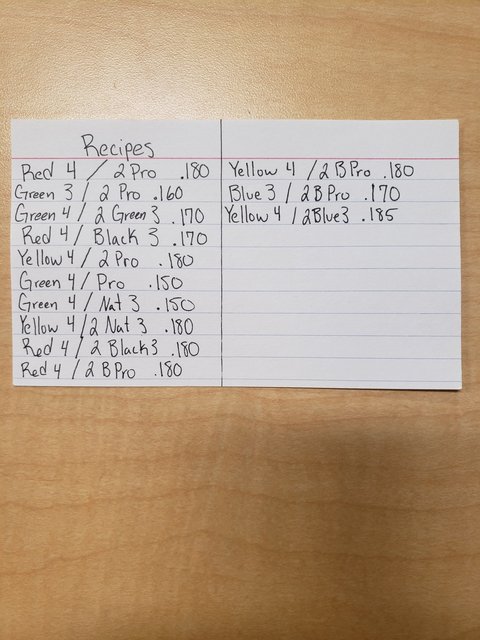 Recipes
Red 4 / 2 Pro .180
Green 3 / 2 Pro .160
Green 4 / 2 Green 3 .170
Red 4 / Black 3 .170
Yellow 4 / 2 Pro .180
Green 4 / Pro .150
Green 4 / Nat 3 .150
Yellow 4 / 2 Nat 3 .180
Red 4 / 2 Black 3 .180
Red 4 / 2 B Pro .180
Yellow 4 / 2 B Pro .180
Blue 3 / 2 B Pro .170
Yellow 4 / 2 Blue 3 .185